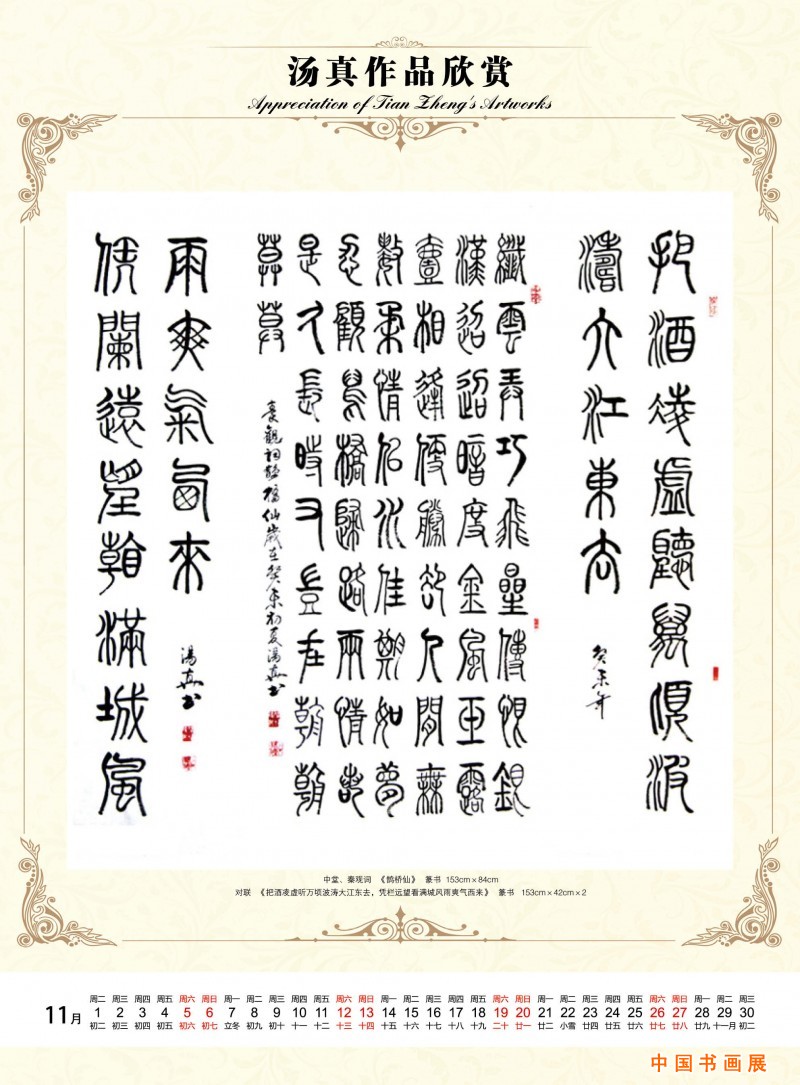 汤真作品欣赏
Appreciation of Tian Zheng's Artworks
把酒凌虚聽萬頃波
濤大江東去
癸未年
纖雲弄巧飛星傳恨銀
漢迢迢暗度金風玉露
壹相逢便勝却人間無
數柔情似水佳期如夢
忍顧鵲橋歸路兩情若
是久長時又豈在朝朝
暮暮
秦觀詞鵲橋仙歲在癸未初夏湯真書
凭闌遠望看滿城風
雨爽氣西來
湯真書
中堂、秦观词 《鹊桥仙》 篆书 153cm×84cm
对联 《把酒凌虚听万顷波涛大江东去，凭栏远望看满城风雨爽气西来》 篆书 153cm×42cm×2
11月
周二 周三 周四 周五 周六 周日 周一 周二 周三 周四 周五 周六 周日 周一 周二 周三 周四 周五 周六 周日 周一 周二 周三 周四 周五 周六 周日 周一 周二 周三
1 2 3 4 5 6 7 8 9 10 11 12 13 14 15 16 17 18 19 20 21 22 23 24 25 26 27 28 29 30
初二 初三 初四 初五 初六 初七 立冬 初九 初十 十一 十二 十三 十四 十五 十六 十七 十八 十九 二十 廿一 廿二 小雪 廿四 廿五 廿六 廿七 廿八 廿九 十一月 初二
中国书画展